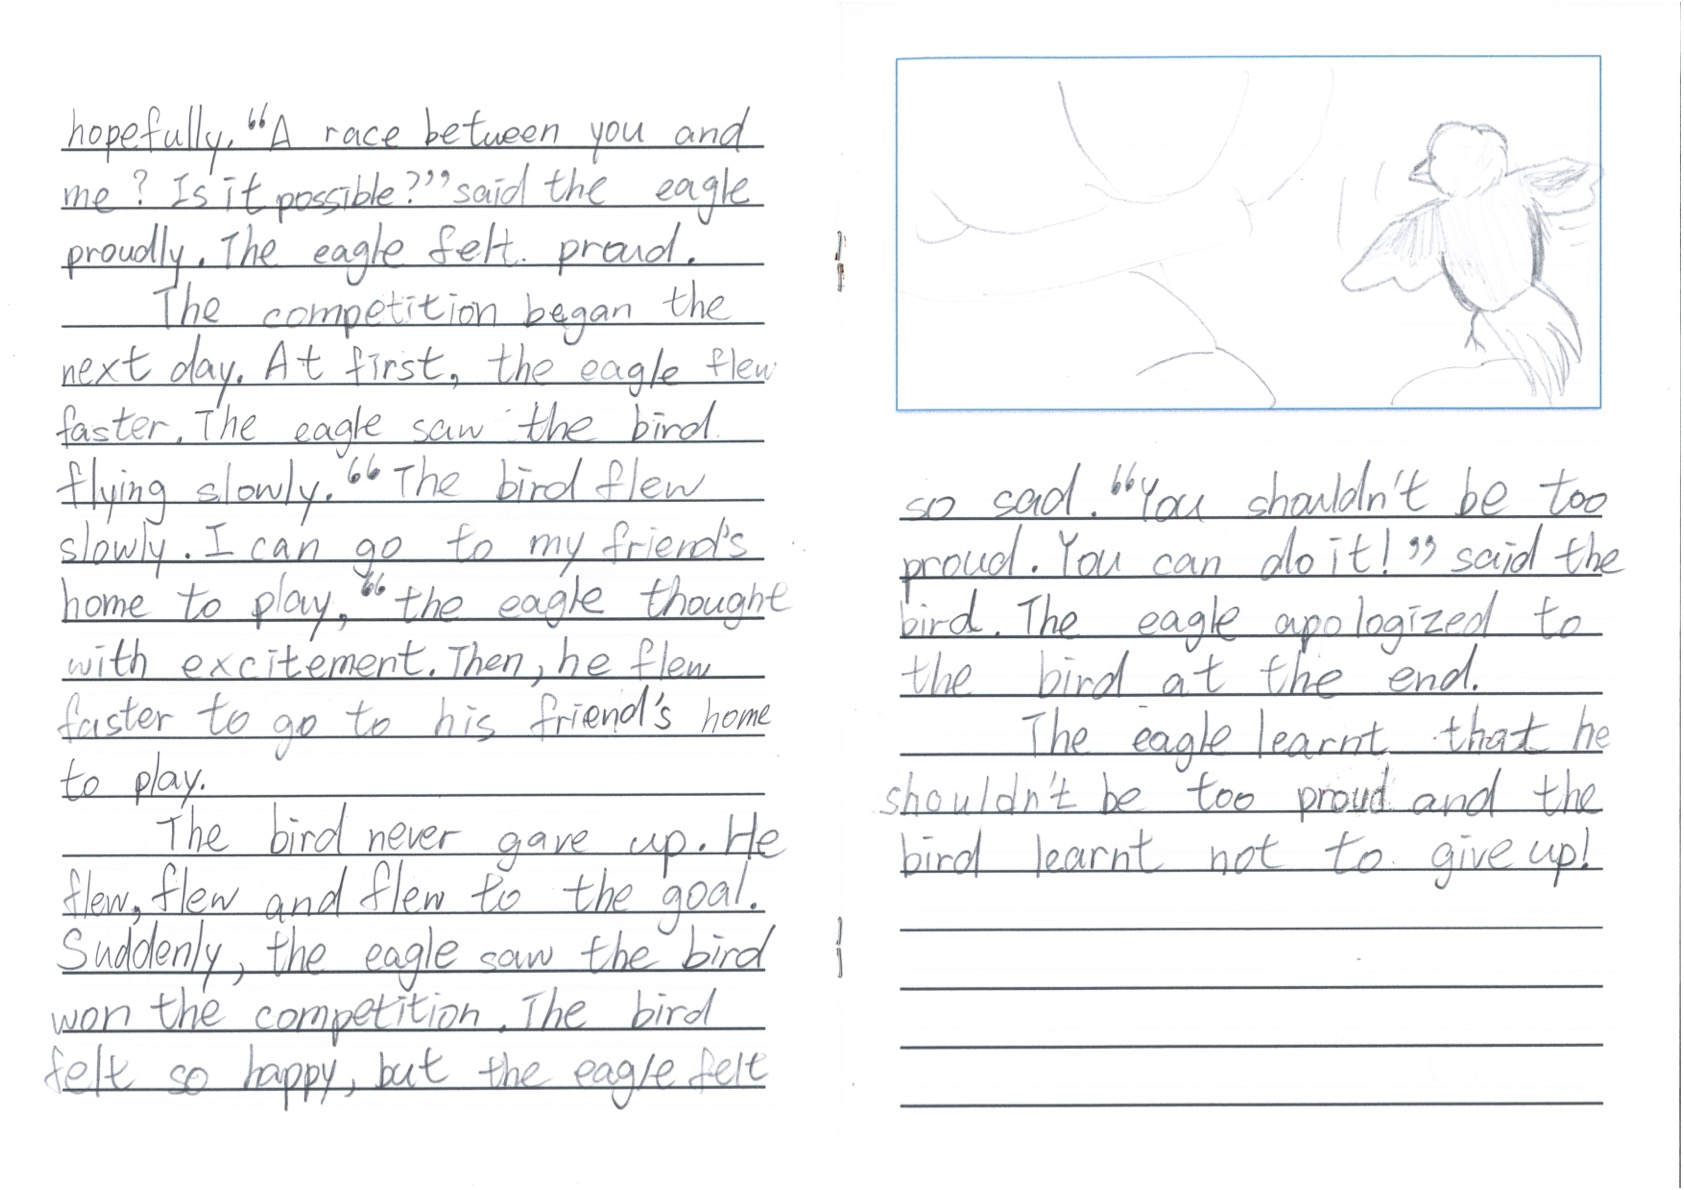 hopefully. “A race between you and
me? Is it possible?” said the eagle
proudly. The eagle felt proud.
The competition began the
next day. At first, the eagle flew
faster. The eagle saw the bird
flying slowly. “The bird flew
slowly. I can go to my friend's
home to play,“ the eagle thought
with excitement. Then, he flew
faster to go to his friend's home
to play.
The bird never gave up. He
flew, flew and flew to the goal.
Suddenly, the eagle saw the bird
won the competition. The bird
felt so happy, but the eagle felt
so sad. “You shouldn't be too
proud. You can do it!” said the
bird. The eagle apologized to
the bird at the end.
The eagle learnt that he
shouldn't be too proud and the
bird learnt not to give up!